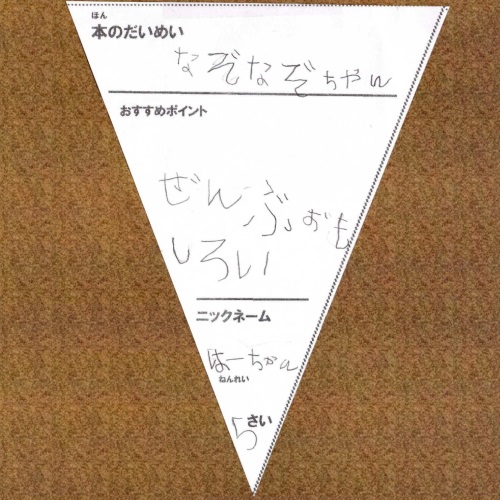 ほん
本のだいめい
なぞなぞちゃん
おすすめポイント
ぜんぶおも
しろい
ニックネーム
はーちゃん
ねんれい
5さい